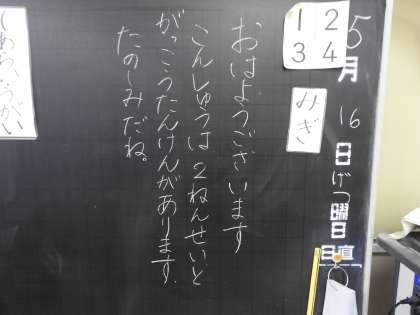 5月16日げつ曜日
日直
1 2
3 4
みぎ
おはようございます
こんしゅうは2ねんせいと
がっこうたんけんがあります。
たのしみだね。